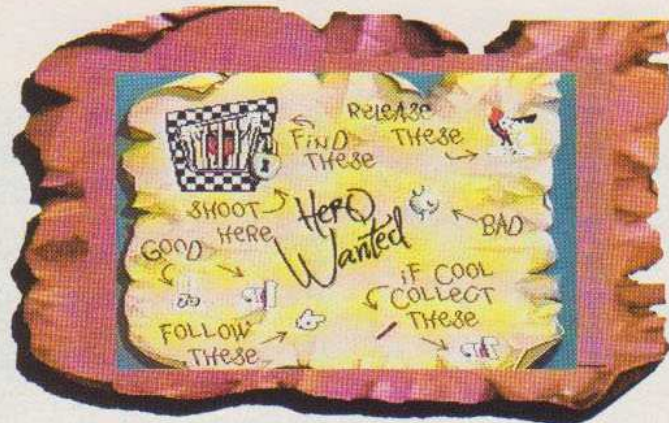 RELEASE
THESE
FIND
THESE
SHOOT
HERE
HERO
Wanted
BAD
GOOD
iF COOL
COLLECT
THESE
FOLLOW
THESE